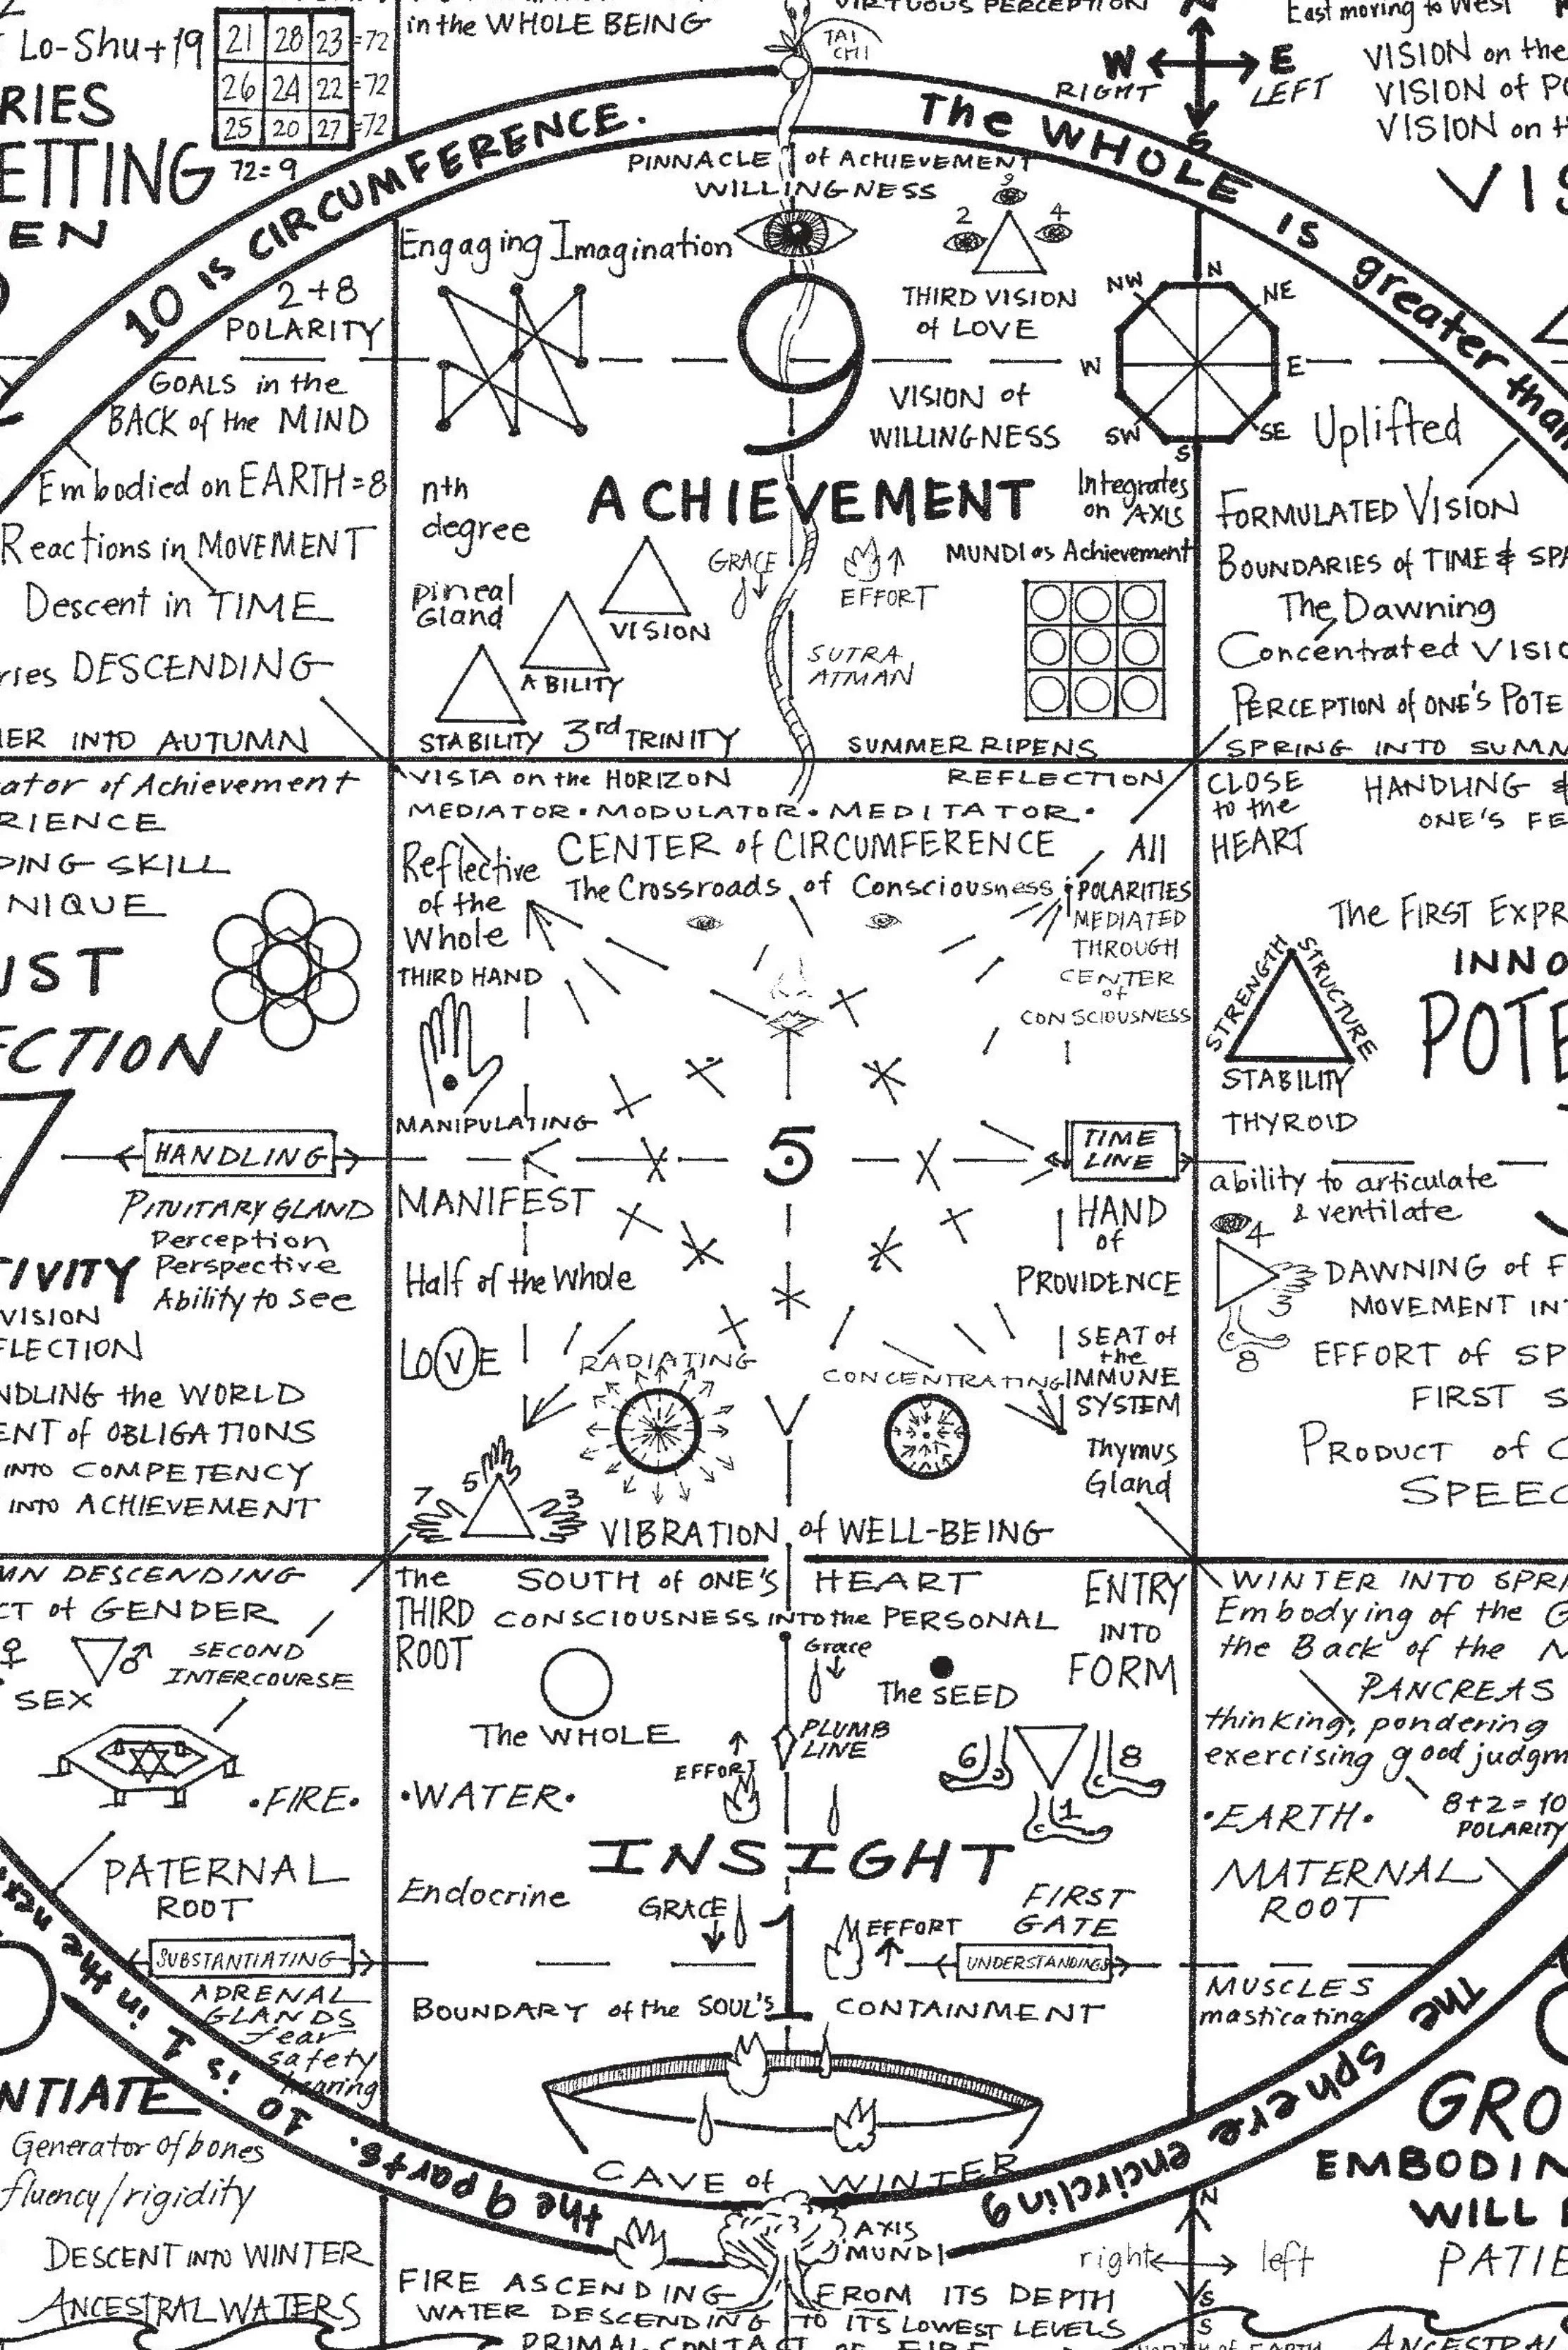 in the WHOLE BEING
VIRTUOUS PERCEPTION
East moving to West
Lo-Shu+19
21 28 23 =72
26 24 22 =72
25 20 27 =72
72=9
RIES
ETTING
EN
TAI
CHI
N
W E
RIGHT LEFT
S
VISION on the
VISION of PO
VISION on th
VIS
10 is CIRCUMFERENCE.
The WHOLE is greater than
PINNACLE of ACHIEVEMENT
WILLINGNESS
Engaging Imagination
9
2 4
THIRD VISION
of LOVE
N
NW NE
W E
SW SE
S
2+8
POLARITY
GOALS in the
BACK of the MIND
Embodied on EARTH=8
Reactions in MOVEMENT
Descent in TIME
ries DESCENDING
ER INTO AUTUMN
9
VISION of
WILLINGNESS
nth
degree
ACHIEVEMENT
Integrates
on AXIS
MUNDI as Achievement
pineal
Gland
GRACE
EFFORT
VISION
ABILITY
STABILITY 3rd TRINITY
SUTRA
ATMAN
SUMMER RIPENS
Uplifted
FORMULATED VISION
BOUNDARIES of TIME & SPA
The Dawning
Concentrated VISIO
PERCEPTION of ONE'S POTE
SPRING INTO SUMM
ator of Achievement
RIENCE
PING SKILL
NIQUE
UST
ECTION
7
HANDLING
PITUITARY GLAND
Perception
Perspective
Ability to see
TIVITY
VISION
FLECTION
NDLING the WORLD
ENT of OBLIGATIONS
INTO COMPETENCY
INTO ACHIEVEMENT
VISTA on the HORIZON REFLECTION
MEDIATOR • MODULATOR • MEDITATOR •
CENTER of CIRCUMFERENCE
The Crossroads of Consciousness
Reflective
of the
Whole
THIRD HAND
MANIPULATING
All
POLARITIES
MEDIATED
THROUGH
CENTER
of
CONSCIOUSNESS
5
TIME
LINE
MANIFEST
Half of the Whole
LOVE
HAND
of
PROVIDENCE
SEAT of
the
IMMUNE
SYSTEM
Thymus
Gland
RADIATING
CONCENTRATING
7 5 3
VIBRATION of WELL-BEING
CLOSE
to the
HEART
HANDLING &
ONE'S FE
The FIRST EXPR
INNO
POTE
STRENGTH
STRUCTURE
STABILITY
THYROID
ability to articulate
& ventilate
4
3
8
DAWNING of F
MOVEMENT INT
EFFORT of SP
FIRST S
PRODUCT of C
SPEEC
MN DESCENDING
CT of GENDER
SECOND
INTERCOURSE
SEX
•FIRE•
PATERNAL
ROOT
SUBSTANTIATING
ADRENAL
GLANDS
fear
safety
hearing
The
THIRD
ROOT
SOUTH of ONE'S HEART
CONSCIOUSNESS INTO the PERSONAL
ENTRY
INTO
FORM
The WHOLE
Grace
The SEED
PLUMB
LINE
EFFORT
•WATER•
6 8
1
INSIGHT
Endocrine
GRACE
1
EFFORT
FIRST
GATE
UNDERSTANDINGS
BOUNDARY of the SOUL'S CONTAINMENT
CAVE of WINTER
WINTER INTO SPRI
Embodying of the G
the Back of the M
PANCREAS
thinking, pondering
exercising good judgm
•EARTH•
8+2=10
POLARITY
MATERNAL
ROOT
MUSCLES
masticating
The sphere encircling
the 9 parts. 10 is 1 in the nex
NTIATE
Generator of bones
fluency/rigidity
DESCENT INTO WINTER
ANCESTRAL WATERS
AXIS
MUNDI
FIRE ASCENDING FROM ITS DEPTH
WATER DESCENDING TO ITS LOWEST LEVELS
PRIMAL CONTACT OF FIRE
N
right left
S
S
S
GRO
EMBODIN
WILL P
PATIE
ANCESTRAL